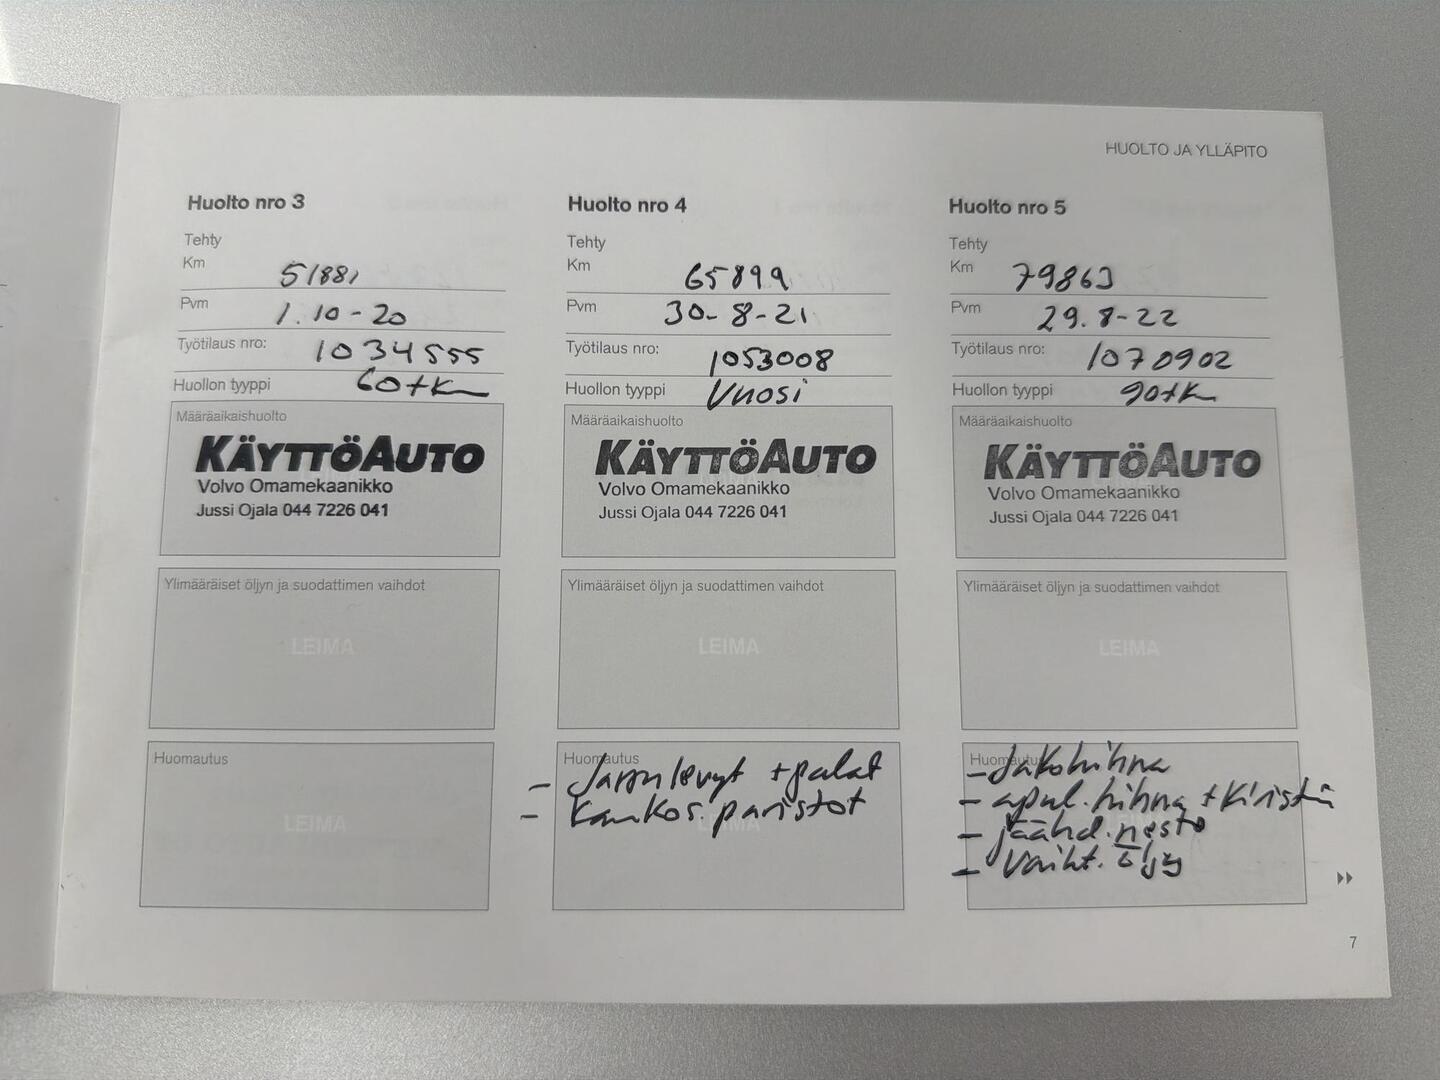 HUOLTO JA YLLÄPITO
Huolto nro 3
Tehty
Km 51881
Pvm 1.10-20
Työtilaus nro: 1034555
Huollon tyyppi 60tkm
Määräaikaishuolto
KÄYTTÖAUTO
Volvo Omamekaanikko
Jussi Ojala 044 7226 041
Ylimääräiset öljyn ja suodattimen vaihdot
LEIMA
Huomautus
LEIMA
Huolto nro 4
Tehty
Km 65899
Pvm 30-8-21
Työtilaus nro: 1053008
Huollon tyyppi Vuosi
Määräaikaishuolto
KÄYTTÖAUTO
Volvo Omamekaanikko
Jussi Ojala 044 7226 041
Ylimääräiset öljyn ja suodattimen vaihdot
LEIMA
Huomautus
- Jarrulevyt + palat
- Kaukos. paristot
LEIMA
Huolto nro 5
Tehty
Km 79863
Pvm 29.8-22
Työtilaus nro: 1070902
Huollon tyyppi 90tkm
Määräaikaishuolto
KÄYTTÖAUTO
LEIMA
Volvo Omamekaanikko
Jussi Ojala 044 7226 041
Ylimääräiset öljyn ja suodattimen vaihdot
LEIMA
Huomautus
- Jakohihna
- apul. hihna + kiristin
- jäähd. nesto
- Vaiht. öljy
7